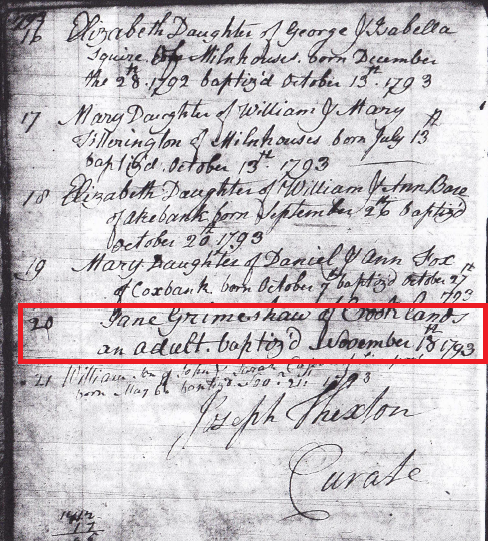 16 Elizabeth Daughter of George & Isabella
Squire of Milnhouses. born December
the 28. 1792 baptiz'd October 13th. 1793
17 Mary Daughter of William & Mary
Titterington of Milnhouses born July 13th
baptiz'd. October 13th. 1793
18 Elizabeth Daughter of William & Ann
of Akebank born September 26 baptiz'd
October 20th 1793
19 Mary Daughter of Daniel & Ann Fox
of Coxbank. born October 7th baptiz'd October 27th
1793
20 Jane Grimeshaw of Crooklands
an adult. baptiz'd November 18th 1793
21 William Son of John & Sarah
born May 6 baptiz'd 1793
Joseph Thexton
Curate